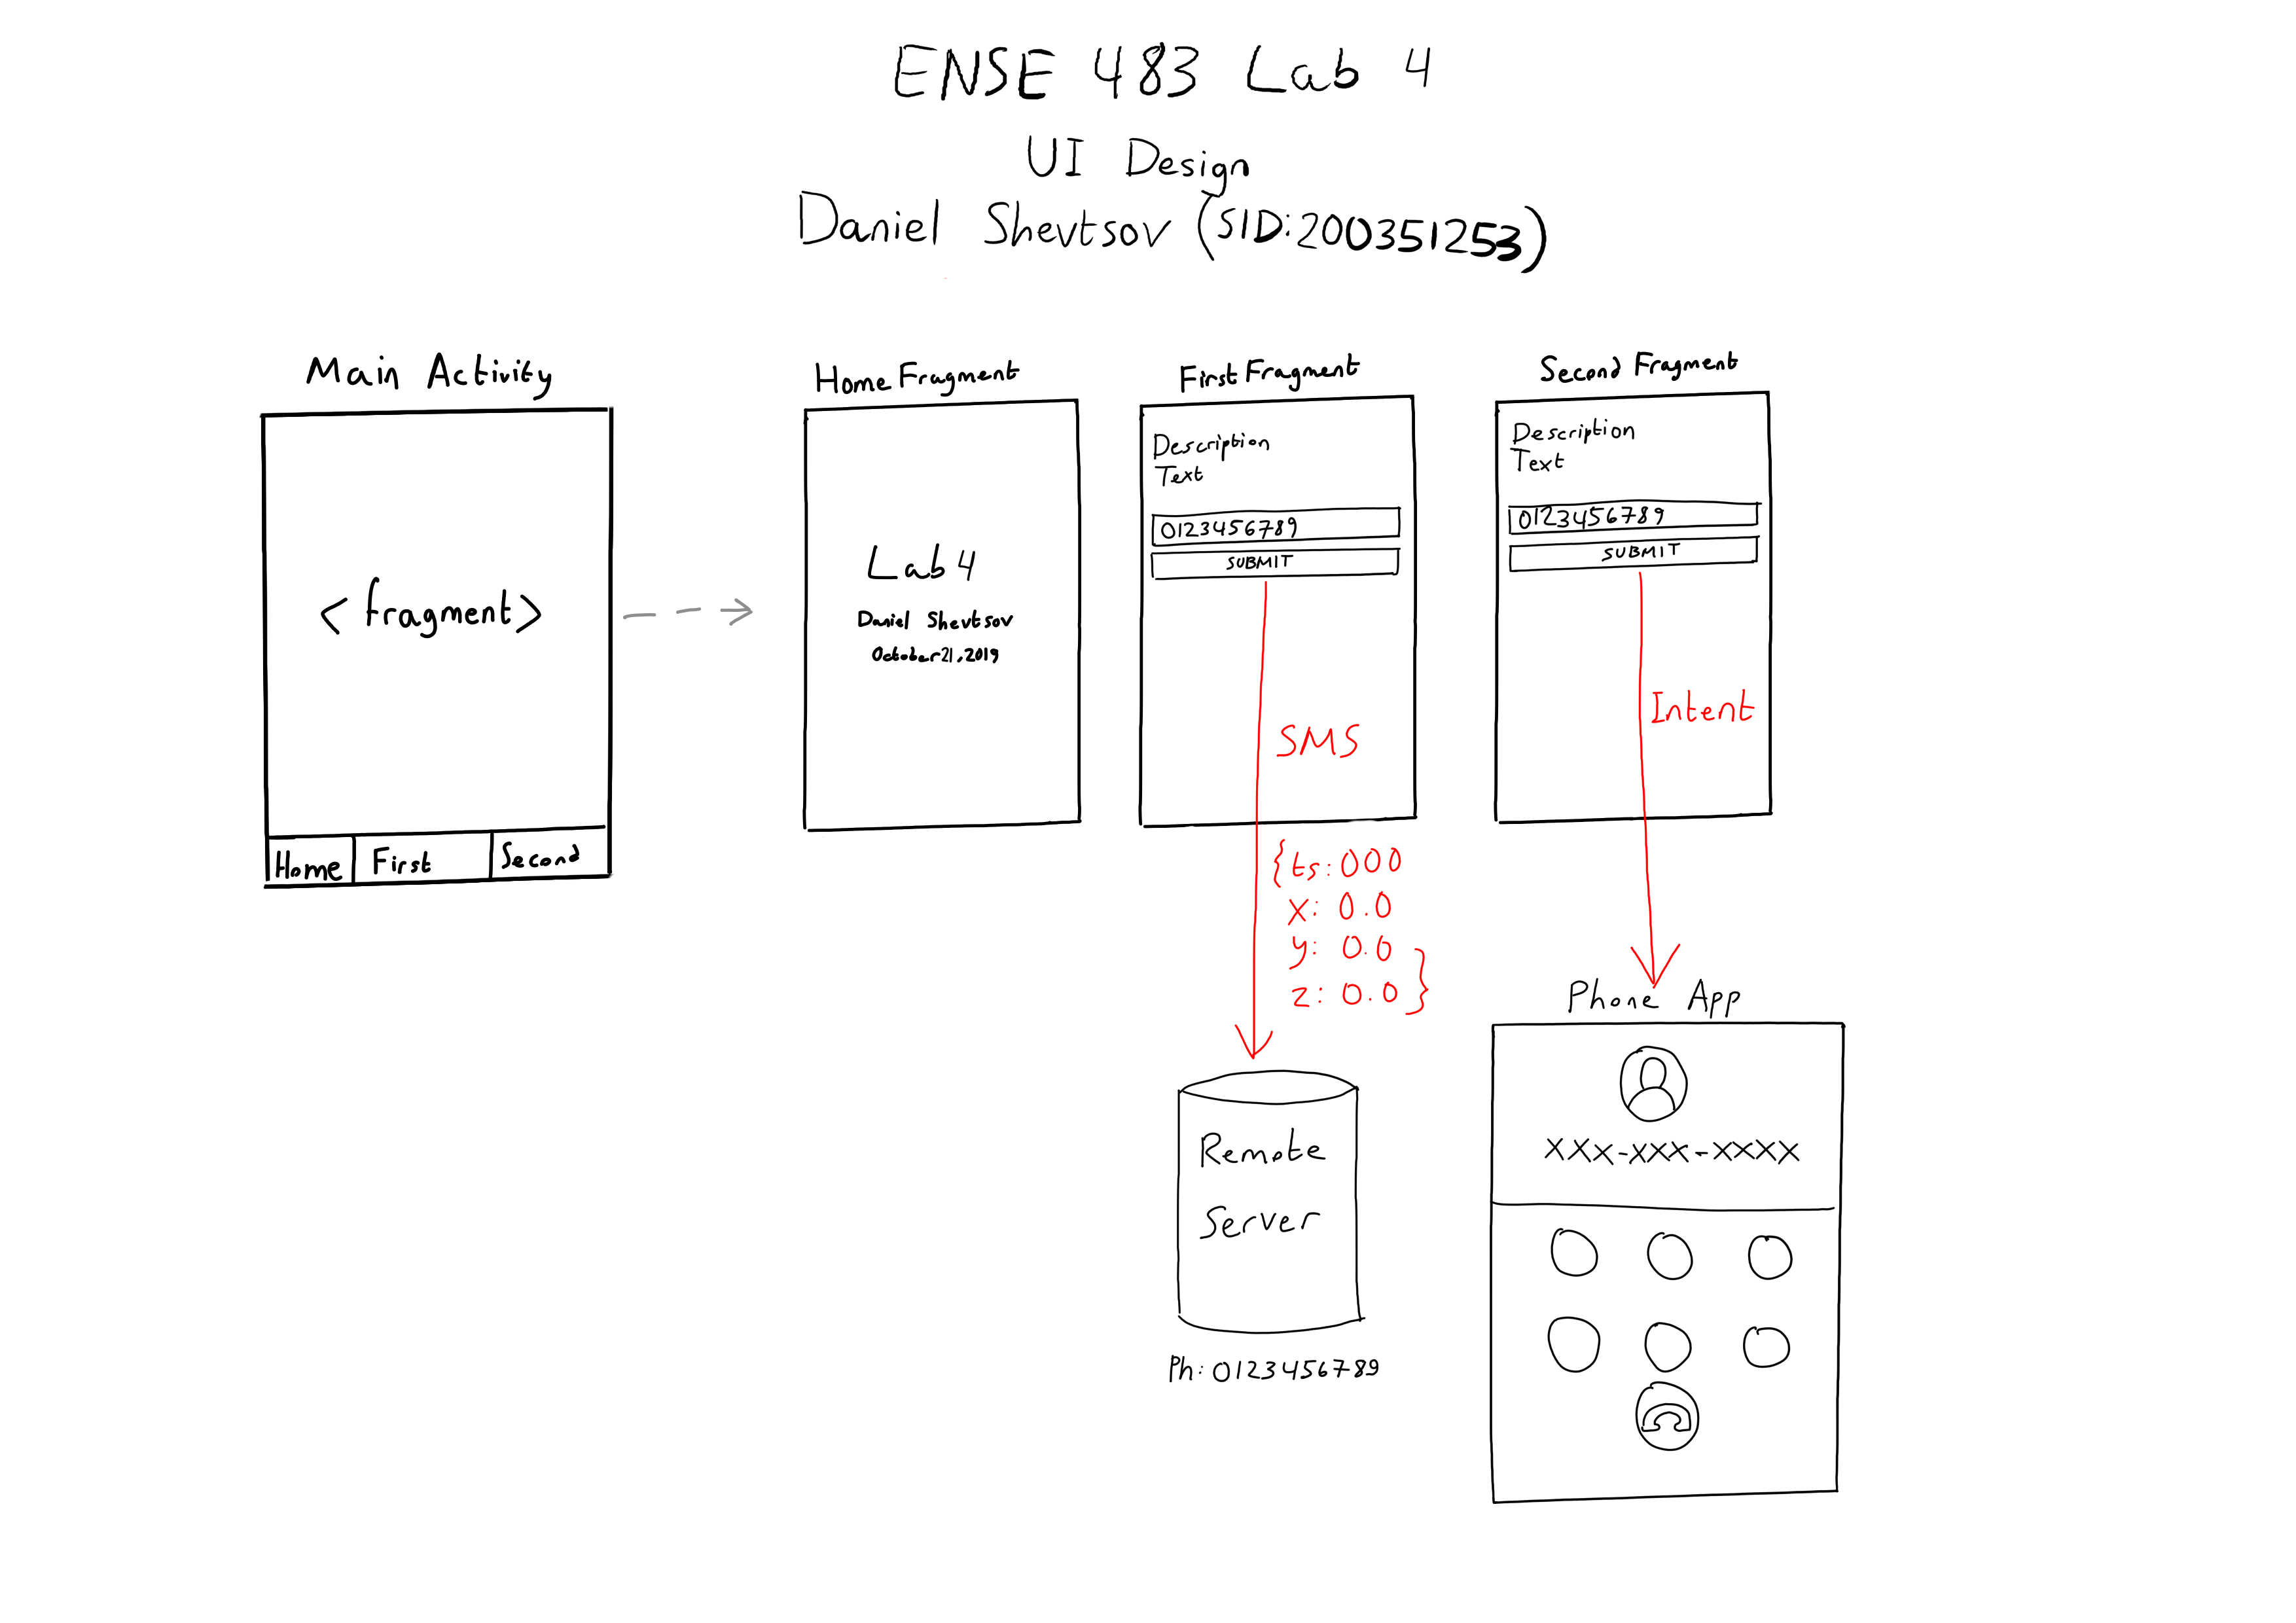 ENSE 483 Lab 4
UI Design
Daniel Shevtsov (SID:200351253)
Main Activity
<fragment>
Home First Second
Home Fragment
Lab 4
Daniel Shevtsov
October 21, 2019
First Fragment
Description
Text
0123456789
SUBMIT
SMS
{ts:000
x: 0.0
y: 0.0
z: 0.0}
Remote
Server
Ph: 0123456789
Second Fragment
Description
Text
0123456789
SUBMIT
Intent
Phone App
XXX-XXX-XXXX